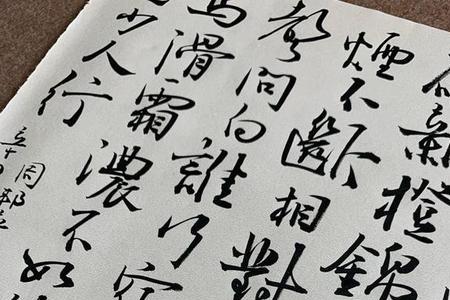 新橙錦
煙不斷相對
聲問向誰行宿
馬滑霜濃不如
少人行
周邦